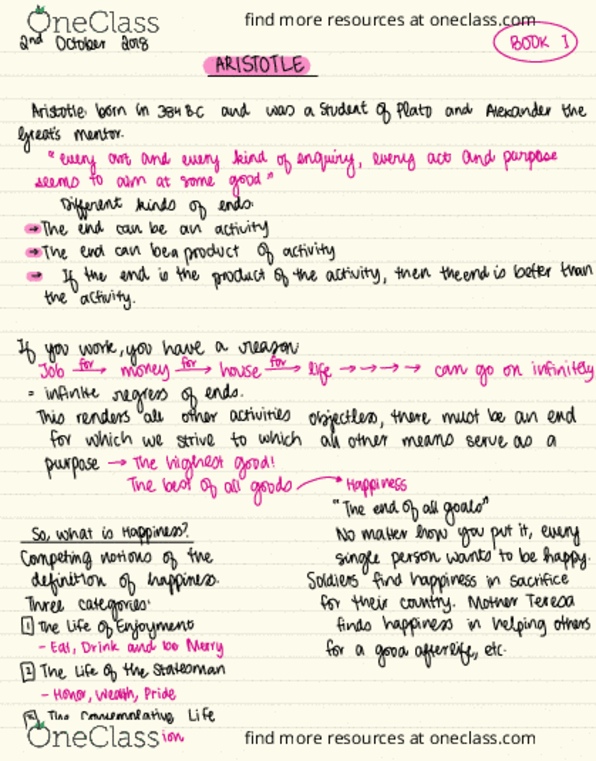 OneClass
find more resources at oneclass.com
2nd October 2018
BOOK I
ARISTOTLE
Aristotle born in 384 B.C and was a student of Plato and Alexander the
Great's mentor.
"every art and every kind of enquiry, every act and purpose
seems to aim at some good"
Different kinds of ends:
→ The end can be an activity
→ The end can be a product of activity
→ If the end is the product of the activity, then the end is better than
the activity.
If you work, you have a reason
Job for→ money for→ house for→ life → → → → can go on infinitely
= infinite regress of ends.
This renders all other activities objectless, there must be an end
for which we strive to which all other means serve as a
purpose → The highest good!
The best of all goods → Happiness
"The end of all goals"
No matter how you put it, every
single person wants to be happy.
Soldiers find happiness in sacrifice
for their country. Mother Teresa
finds happiness in helping others
for a good afterlife, etc.
So, what is Happiness?
Competing notions of the
definition of happiness.
Three categories:
1 The Life of Enjoyment
- Eat, Drink and be Merry
2 The Life of the Statesman
- Honor, Wealth, Pride
The Contemplative Life
OneClass
ion
find more resources at oneclass.com